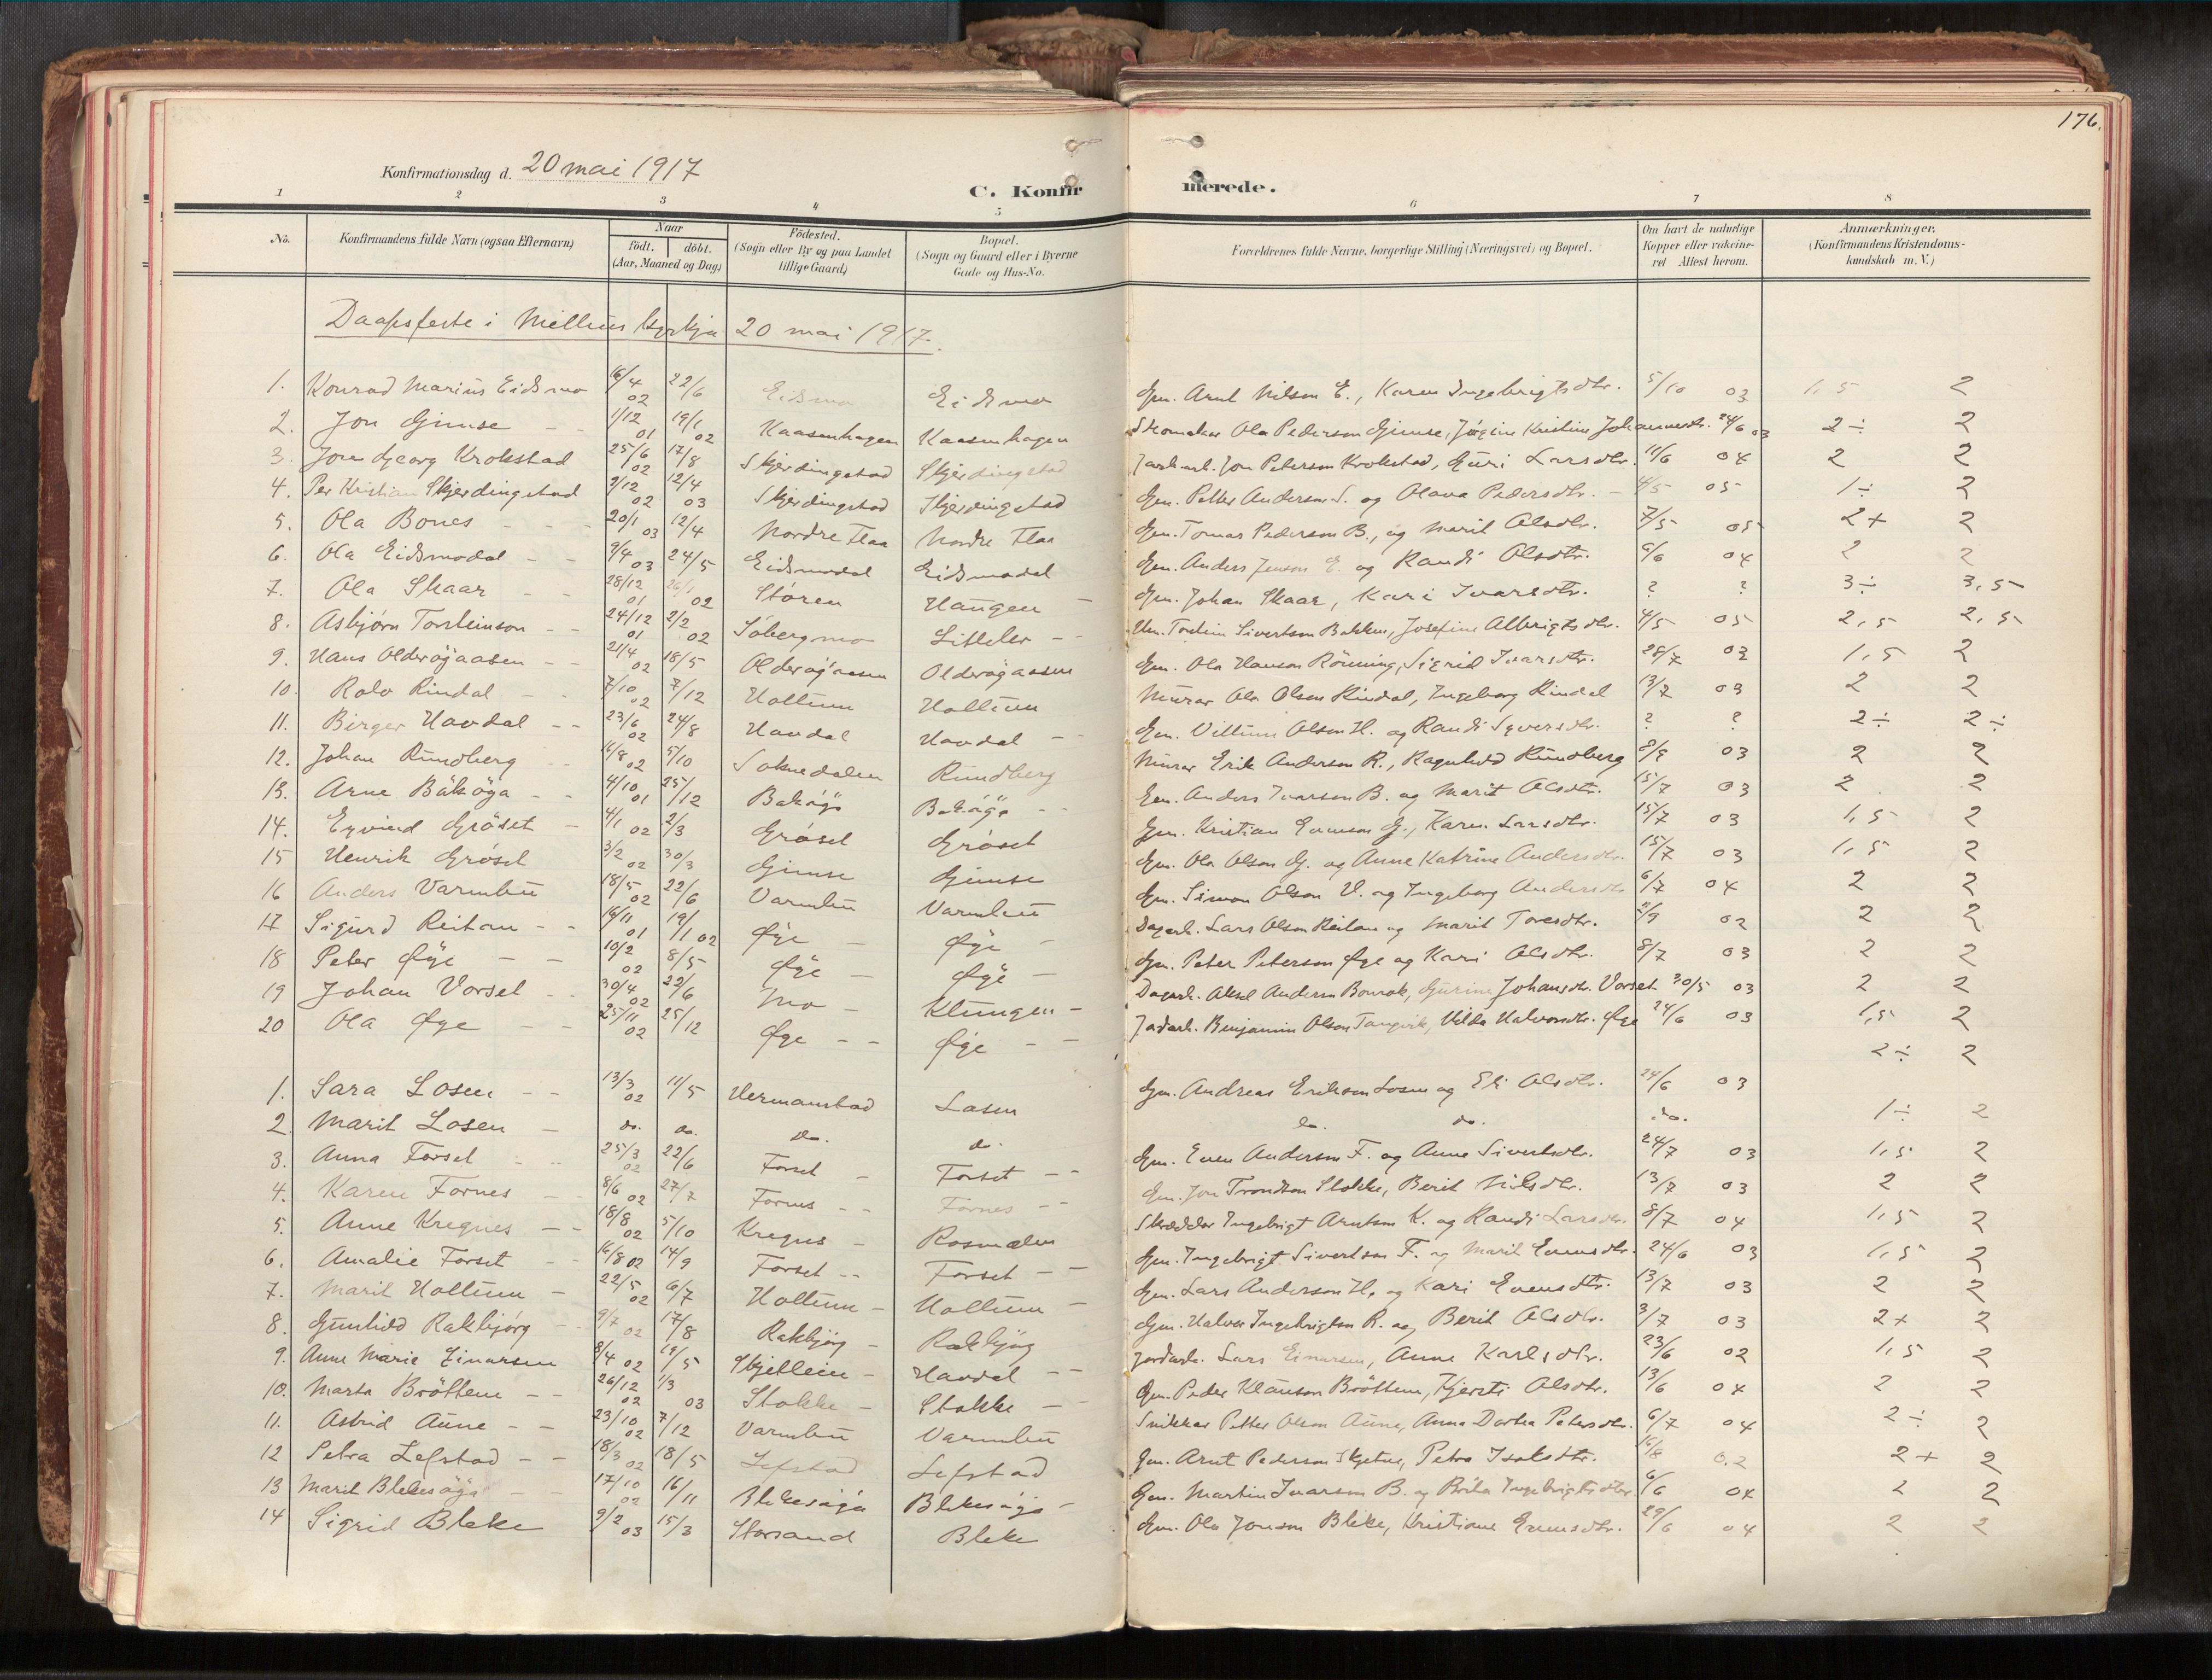 176.
Konfirmationsdag d. 20 mai 1917
C. Konfirmerede.
1 2 3 4 5 6 7 8
No. Konfirmandens fulde Navn (ogsaa Efternavn) Naar født. døbt. (Aar, Maaned og Dag) Fødested. (Sogn eller By og paa Landet tillige Gaard) Bopæl. (Sogn og Gaard eller i Byerne Gade og Hus-No. Forældrenes fulde Navne, borgerlige Stilling (Næringsvei) og Bopæl. Om havt de naturlige Kopper eller vakcineret Attest herom. Anmærkninger. (Konfirmandens Kristendomskundskab m. V.)
Daapsfeste i Melhus kyrkja 20 mai 1917.
1. Konrad Marius Eidsmo 16/4 02 22/6 Eidsmo Eidsmo Gm. Arnt Nilson E., Karen Ingebrigtsdtr. 5/10 03 1,5 2
2. Jon Gimse 1/12 01 19/1 02 Kaasenhagen Kaasenhagen Skomaker Ola Pederson Gimse, Jørgine Kristine Johannesdtr. 24/6 03 2÷ 2
3. Jon Georg Krokstad 25/6 02 17/8 Skjerdingstad Skjerdingstad Jon Peterson Krokstad, Guri Larsdtr. 11/6 04 2 2
4. Per Kristian Skjerdingstad 2/12 02 12/4 03 Skjerdingstad Skjerdingstad Gm. Petter Anderson S. og Olava Pedersdtr. 4/5 05 1÷ 2
5. Ola Bones 20/1 03 12/4 Nordre Flaa Nordre Flaa Gm. Tomas Pederson B., og Marit Olsdtr. 7/5 05 2+ 2
6. Ola Eidsmodal 9/4 03 24/5 Eidsmodal Eidsmodal Gm. Anders Jenson E. og Randi Olsdtr. 6/6 04 2 2
7. Ola Skaar 28/12 01 26/1 02 Støren Haugen Gm. Johan Skaar, Kari Ivarsdtr. ? ? 3÷ 3,5
8. Asbjørn Torsteinson 24/12 01 2/2 02 Søbergmo Sivertson Bakken, Josefine Albrigtsdtr. 4/5 05 2,5 2,5
9. Hans Olderøjaasen 21/4 02 18/5 Olderøjaasen Olderøjaasen Gm. Ola Hanson Rønning, Sigrid Ivarsdtr. 28/7 03 1,5 2
10. Rolv Rindal 7/10 02 7/12 Hollum Hollum Murar Ola Olson Rindal, Ingeborg Rindal 13/7 03 2 2
11. Birger Havdal 23/6 02 24/8 Havdal Havdal Gm. Villum Olson H. og Randi Syversdtr. ? ? 2÷ 2÷
12. Johan Rundberg 11/8 02 5/10 Soknedalen Rundberg Murar Erik Anderson R., Ragnhild Rundberg 8/8 03 2 2
13. Arne Bakøya 4/10 01 25/12 Bakøya Bakøya Gm. Anders Ivarson B. og Marit Olsdtr. 15/7 03 2 2
14. Eyvind Grøset 4/1 02 2/3 Grøset Grøset Gm. Kristian Evenson G., Karen Larsdtr. 15/7 03 1,5 2
15 Henrik Grøset 3/2 02 30/3 Gimse Gimse Gm. Ola Olson G. og Anne Katrine Andersdtr. 15/7 03 1,5 2
16 Anders Varmbu 18/5 02 22/6 Varmbu Varmbu Gm. Simon Olson V. og Ingeborg Andersdtr 6/7 04 2 2
17 Sigurd Reitan 16/11 01 19/1 02 Øye Øye Dagarb. Lars Olson Reitan og Marit Toresdtr. 2/9 02 2 2
18 Peter Øye 10/2 02 8/5 Øye Øye Gm. Peter Peterson Øye og Kari Olsdtr. 8/7 03 2 2
19 Johan Vorset 30/4 02 22/6 Mo Klungen Dagarb. Aksel Anderson Gurine Johansdtr. Vorset 30/5 03 2 2
20 Ola Øye 25/11 02 25/12 Øye Øye Jadarb. Benjamin Olson Tangvik, Halvorsdtr. Øye 24/6 03 1,5 2
2÷ 2
1. Sara Losen 13/3 02 11/5 Hermanstad Losen Gm. Andreas Erikson Losen og Eli Olsdtr. 24/6 03
2. Marit Losen do. do. do. do. do. do. do. 1÷ 2
3. Anna Forset 25/3 02 22/6 Forset Forset Gm. Even Anderson F. og Anne Sivertsdtr. 24/7 03 1,5 2
4. Karen Fornes 8/6 02 27/7 Fornes Fornes Gm. Jon Trondson Stokke, Berit Nilsdtr. 13/7 03 2 2
5. Anne Kregnes 18/8 02 5/10 Kregnes Rosmælen Skrædder Ingebrigt Arntson K. og Randi Larsdtr. 8/7 04 1,5 2
6. Amalie Forset 16/8 02 14/9 Forset Forset Gm. Ingebrigt Sivertson F. og Marit Evensdtr. 24/6 03 1,5 2
7. Marit Hollum 22/5 02 6/7 Hollum Hollum Gm. Lars Anderson H. og Kari Evensdtr. 13/7 03 2 2
8. Gunhild Rakbjørg 9/7 02 17/8 Rakbjørg Rakbjørg Gm. Halvor Ingebrigtson R. og Berit Olsdtr. 3/7 03 2+ 2
9. Anne Marie Einarsen 8/4 02 19/5 Skjetlein Havdal Jordarb. Lars Einarsen, Anne Karlsdtr. 23/6 02 1,5 2
10. Marta Brøttem 26/12 02 1/3 03 Stokke Stokke Gm. Peder Klauson Brøttem, Kjersti Olsdtr. 13/6 04 2 2
11. Astrid Aune 23/10 02 7/12 Varmbu Varmbu Snikkar Petter Olson Aune, Anna Dortea Petersdtr. 6/7 04 2÷ 2
12 Petra Lefstad 18/3 02 18/5 Lefstad Lefstad Gm. Arnt Pederson Skjetne, Petra Isaksdtr. 16/8 02 2+ 2
13 Marit Blekesøya 17/10 02 16/11 Blekesøya Blekesøya Gm. Martin Ivarson B. og Brita Ingebrigtsdtr. 6/6 04 2 2
14 Sigrid Bleke 9/2 03 15/3 Storsand Bleke Gm. Ola Jonson Bleke, Kristiane Evensdtr. 29/6 04 2 2